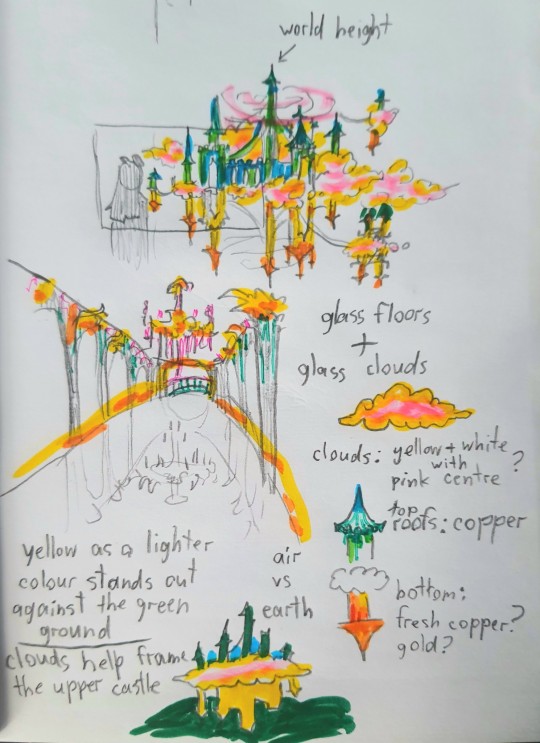 world height
glass floors
+
glass clouds
clouds: yellow + white
with
pink centre ?
top
roofs: copper
bottom:
fresh copper?
gold?
air
vs
earth
yellow as a lighter
colour stands out
against the green
ground
clouds help frame
the upper castle